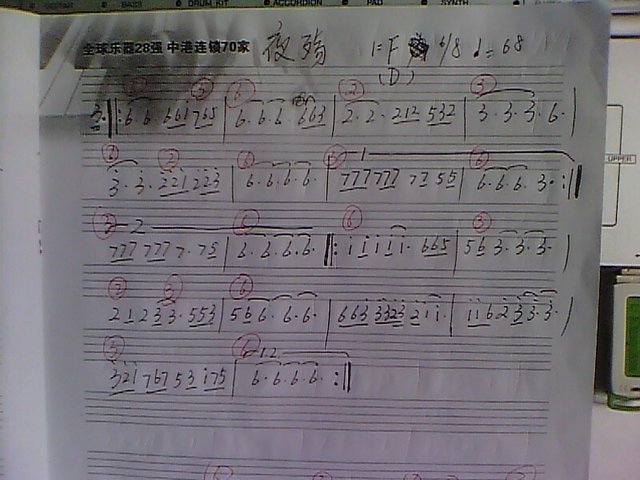 GUITAR BASS DRUM KIT ACCORDION PAD SYNTH
全球乐器28强 中港连锁70家 夜殇 1=F 6/8 ♩.=68
(D)
6· 6· 661 765 | 6· 6· 6· 663 | 2· 2· 212 532 | 3· 3· 3· 6·
3· 3· 221 223 | 6· 6· 6· 6· | 777 777 77 55 | 6· 6· 6· 3· :||
777 777 7· 75 | 6· 6· 6· 6· ||: 1 1 1 1 1· 665 | 563· 3· 3·
2 1 2 3 3· 553 | 566· 6· 6· | 663 3323 2 1 1· | 1 1 6 2 3 3· 3·
321 767 53 175 | 6· 6· 6· 6· :||
UPPER